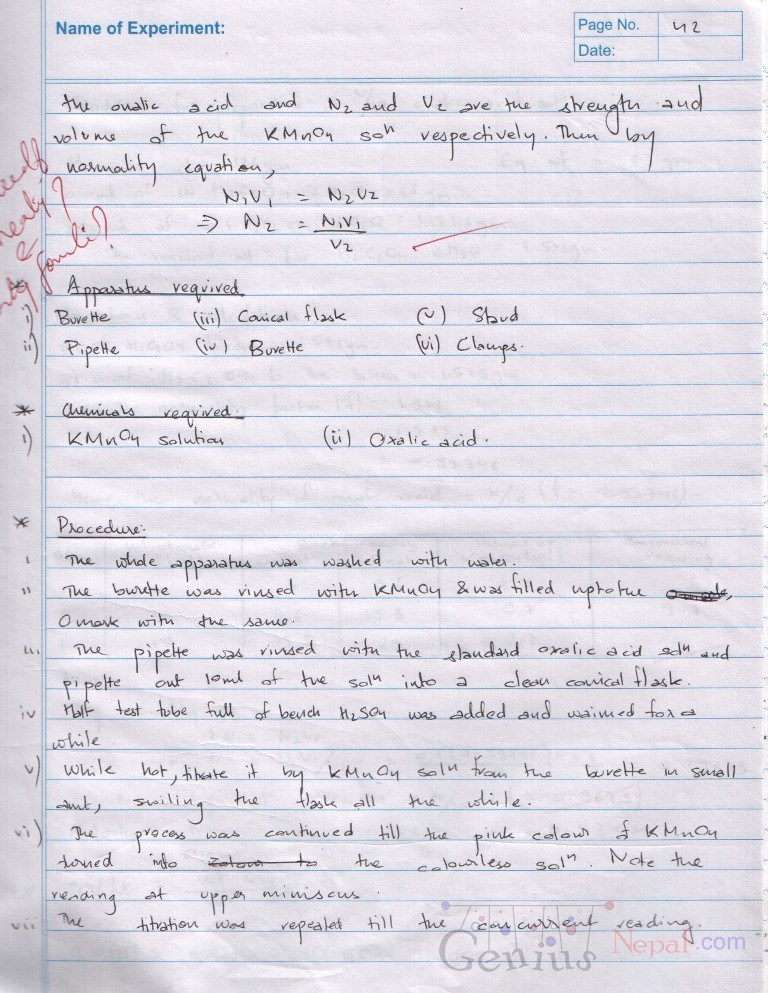 Name of Experiment:
Page No. 42
Date:
the oxalic acid and N2 and V2 are the strength and
volume of the KMnO4 solⁿ respectively. Then by
normality equation,
N1V1 = N2V2
⇒ N2 = N1V1
V2
* Apparatus required
i) Burette (iii) Conical flask (v) Stand
ii) Pipette (iv) Burette (vi) Clamps.
* Chemicals required.
i) KMnO4 solution (ii) Oxalic acid.
* Procedure:
i The whole apparatus was washed with water.
ii The burette was rinsed with KMnO4 & was filled upto the
0 mark with the same.
iii The pipette was rinsed with the standard oxalic acid solⁿ and
pipette out 10ml of the solⁿ into a clean conical flask.
iv Half test tube full of bench H2SO4 was added and warmed for a
while
v) While hot, titrate it by KMnO4 solⁿ from the burette in small
amt, swiling the flask all the while.
vi) The process was continued till the pink colour of KMnO4
turned into the colourless solⁿ. Note the
reading at upper miniscus.
vii The titration was repeated till the concurrent reading.
Genius Nepal.com